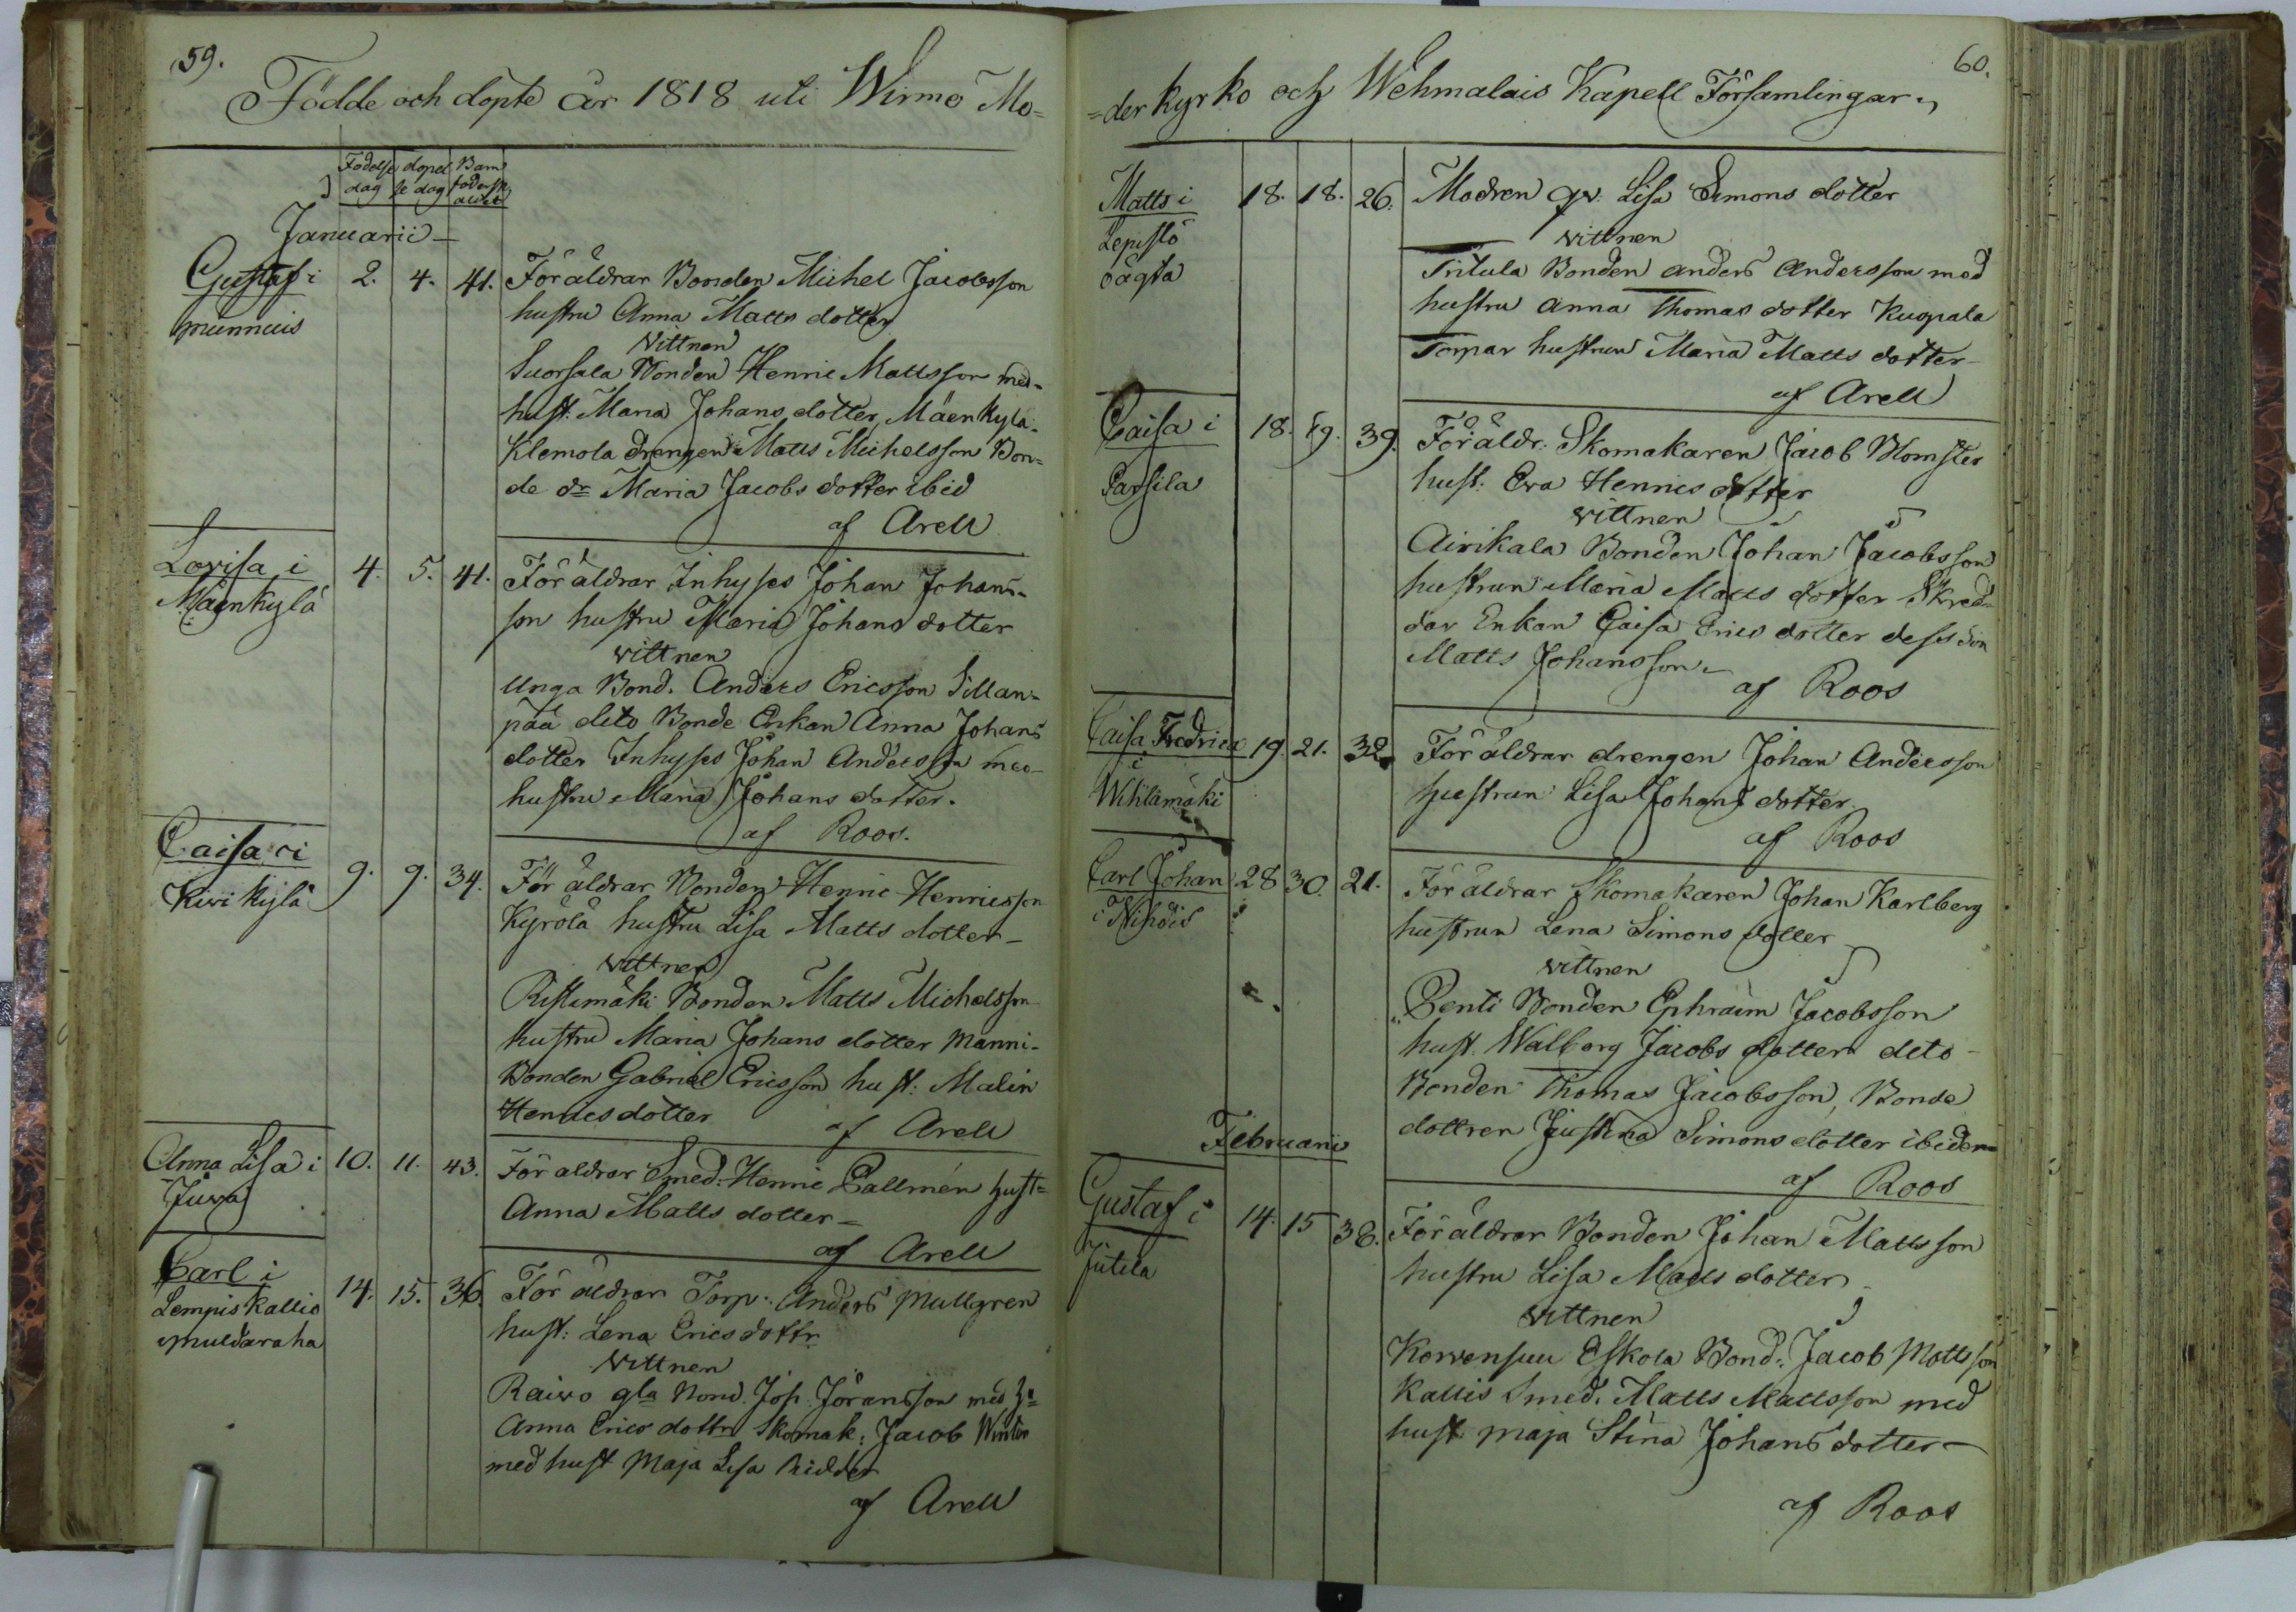 59.
Födde och döpte år 1818 uti Wirmo Mo=
Födelse dag
döpel se dag
Barn föder sk ålder
Januarii
Gustaf i
munnuis
2. 4. 41.
Föräldrar Bonden Michel Jacobsson
hustru Anna Matts dotter
vittnen
Suorsala Bonden Henric Mattsson med
hust: Maria Johans dotter, Mäenkylä
Klemola drengen Matts Michelsson Bon=
de dr Maria Jacobs dotter ibid
af Arell
Lovisa i
Mäenkylä
4. 5. 41.
Föräldrar Inhyses Johan Johans-
son hustru Maria Johans dotter
vittnen
Unga Bond. Anders Ericsson Sillan-
pää dito Bonde Enkan Anna Johans
dotter Inhyses Johan Andersson med
hustru Maria Johans dotter.
af Roos.
Caisa i
Kivikylä
9. 9. 34.
Föräldrar Bonden Henric Henricsson
Kyrölä hustru Lisa Matts dotter
vittnen
Ristimäki Bonden Matts Michelsson
hustru Maria Johans dotter Manni-
Bonden Gabriel Ericsson hust: Malin
Henrics dotter
af Arell
Anna Lisa i
Juva
10. 11. 43.
Föräldrar Smed: Henric Pallmén hust=
Anna Matts dotter
af Arell
Carl i
Lempis Kallio
muldaraha
14. 15. 36.
Föräldrar Torp: Anders Mullgren
hust: Lena Erics dottr
vittnen
Raivo gla Bond. Jos. Jöransson med
Anna Erics dottr Skomak: Jacob Winter
med hust Maja Lisa Ridder
af Arell
60.
=der kyrko och Wehmalais Kapell Församlingar.
Matts i
Lepistö
Sågta
18. 18. 26.
Modren qv. Lisa Simons dotter
vittnen
Tritula Bonden Anders Andersson med
hustru Anna Thomas dotter Kuopala
Torpar hustrun Maria Matts dotter
af Arell
Caisa i
Parsila
18. 19. 39.
Föräldr: Skomakaren Jacob Blomster
hust: Eva Henrics dotter
vittnen
Airikala Bonden Johan Jacobsson
hustrun Maria Matts dotter Skred-
dar Enkan Caisa Erics dotter dess son
Matts Johansson
af Roos
Caisa Fredrica
i
Wihlämäki
19. 21. 32.
Föräldrar drengen Johan Andersson
hustrun Lisa Johans dotter
af Roos
Carl Johan
i Nihois
28 30. 21.
Föräldrar Skomakaren Johan Karlberg
hustrun Lena Simons dotter
vittnen
Penti Bonden Ephraim Jacobsson
hust. Walborg Jacobs dotter dito
Bonden Thomas Jacobsson, Bonde
dottren Justina Simons dotter ibidem
af Roos
Februarii
Gustaf i
Jutela
14. 15 38.
Föräldrar Bonden Johan Matts son
hustru Lisa Matts dotter
vittnen
Korvensuu Eskola Bond: Jacob Mattsson
Kallis Smed. Matts Mattsson med
hust Maja Stina Johans dotter
af Roos